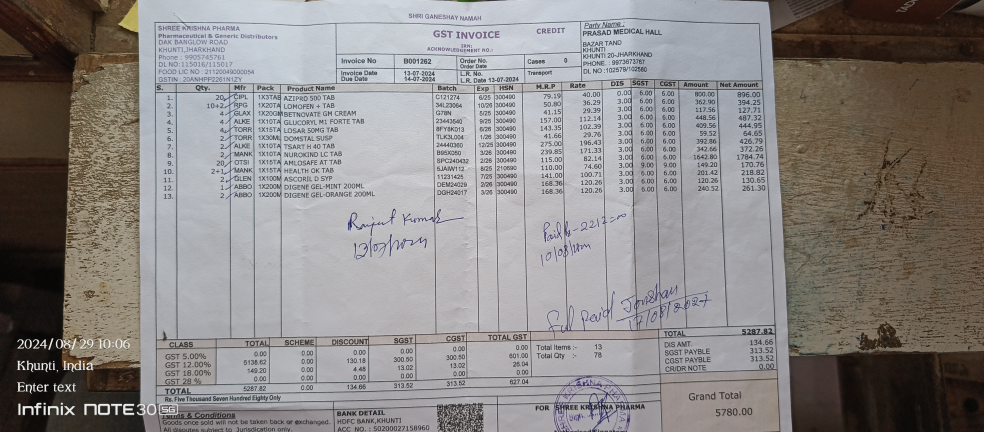 SHRI GANESHAY NAMAH
SHREE KRISHNA PHARMA
Pharmaceutical & Generic Distributors
DAK BANGLOW ROAD
KHUNTI,JHARKHAND
Phone : 9905745761
DL NO:115016/115017
FOOD LIC NO : 21120049000054
GSTIN : 20ANHPP2261N1ZY
GST INVOICE
CREDIT
IRN:
ACKNOWLEDGEMENT NO.:
Invoice No B001262 Order No. Cases 0
Order Date
Invoice Date 13-07-2024 L.R. No. Transport
Due Date 14-07-2024 L.R. Date 13-07-2024
Party Name :
PRASAD MEDICAL HALL
BAZAR TAND
KHUNTI
KHUNTI 20-JHARKHAND
PHONE. : 9973673767
DL NO :102579/102580
S. Qty. Mfr Pack Product Name Batch Exp HSN M.R.P Rate DIS SGST CGST Amount Net Amount
1. 20 CIPL 1X3TAB AZIPRO 500 TAB C121274 6/25 300490 79.19 40.00 0.00 6.00 6.00 800.00 896.00
2. 10+2 RPG 1X20TA LOMOFEN + TAB 34L23064 10/26 300490 50.80 36.29 3.00 6.00 6.00 362.90 394.25
3. 4 GLAX 1X20GM BETNOVATE GM CREAM G78N 5/25 300490 41.15 29.39 3.00 6.00 6.00 117.56 127.71
4. 4 ALKE 1X10TA GLUCORYL M1 FORTE TAB 23443540 9/25 300490 157.00 112.14 3.00 6.00 6.00 448.56 487.32
5. 4 TORR 1X15TA LOSAR 50MG TAB 8FY8K013 6/26 300490 143.35 102.39 3.00 6.00 6.00 409.56 444.95
6. 2 TORR 1X30ML DOMSTAL SUSP TLK3L004 1/26 300490 41.66 29.76 3.00 6.00 6.00 59.52 64.65
7. 2 ALKE 1X10TA TSART H 40 TAB 24440360 12/25 300490 275.00 196.43 3.00 6.00 6.00 392.86 426.79
8. 2 MANK 1X10TA NUROKIND LC TAB B95X050 3/26 300490 239.85 171.33 3.00 6.00 6.00 342.66 372.26
9. 20 OTSI 1X15TA AMLOSAFE AT TAB SPC240432 2/26 300490 115.00 82.14 3.00 6.00 6.00 1642.80 1784.74
10. 2+1 MANK 1X15TA HEALTH OK TAB 5JAIW112 8/25 210690 110.00 74.60 3.00 9.00 9.00 149.20 170.76
11. 2 GLEN 1X100M ASCORIL D SYP 11231425 7/25 300490 141.00 100.71 3.00 6.00 6.00 201.42 218.82
12. 1 ABBO 1X200M DIGENE GEL-MINT 200ML DEM24029 2/26 300490 168.36 120.26 3.00 6.00 6.00 120.26 130.65
13. 2 ABBO 1X200M DIGENE GEL-ORANGE 200ML DGH24017 3/26 300490 168.36 120.26 3.00 6.00 6.00 240.52 261.30
Ranjeet Kumar
Paid Rs-2212=00
10/08/
Full Paid
17/08/2027
CLASS TOTAL SCHEME DISCOUNT SGST CGST TOTAL GST
GST 5.00% 0.00 0.00 0.00 0.00 0.00 0.00
GST 12.00% 5138.62 0.00 130.18 300.50 300.50 601.00
GST 18.00% 149.20 0.00 4.48 13.02 13.02 26.04
GST 28 % 0.00 0.00 0.00 0.00 0.00 0.00
TOTAL 5287.82 0.00 134.66 313.52 313.52 627.04
Total Items :- 13
Total Qty :- 78
TOTAL 5287.82
DIS AMT. 134.66
SGST PAYBLE 313.52
CGST PAYBLE 313.52
CR/DR NOTE 0.00
Rs. Five Thousand Seven Hundred Eighty Only
Grand Total
5780.00
Terms & Conditions
Goods once sold will not be taken back or exchanged.
All disputes subject to Jurisdiction only.
BANK DETAIL
HDFC BANK,KHUNTI
ACC NO. : 50200027158960
FOR SHREE KRISHNA PHARMA
2024/08/29 10:06
Khunti, India
Enter text
Infinix NOTE30 5G